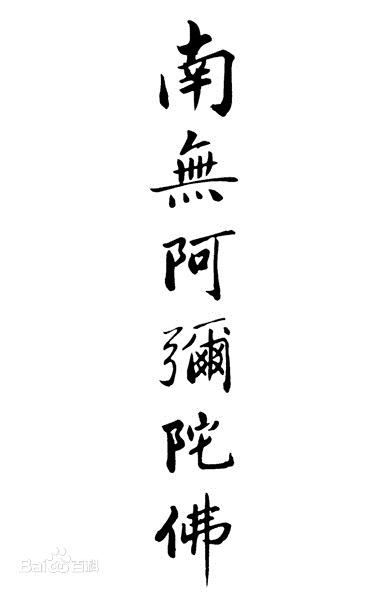 南無阿彌陀佛
Bai百科